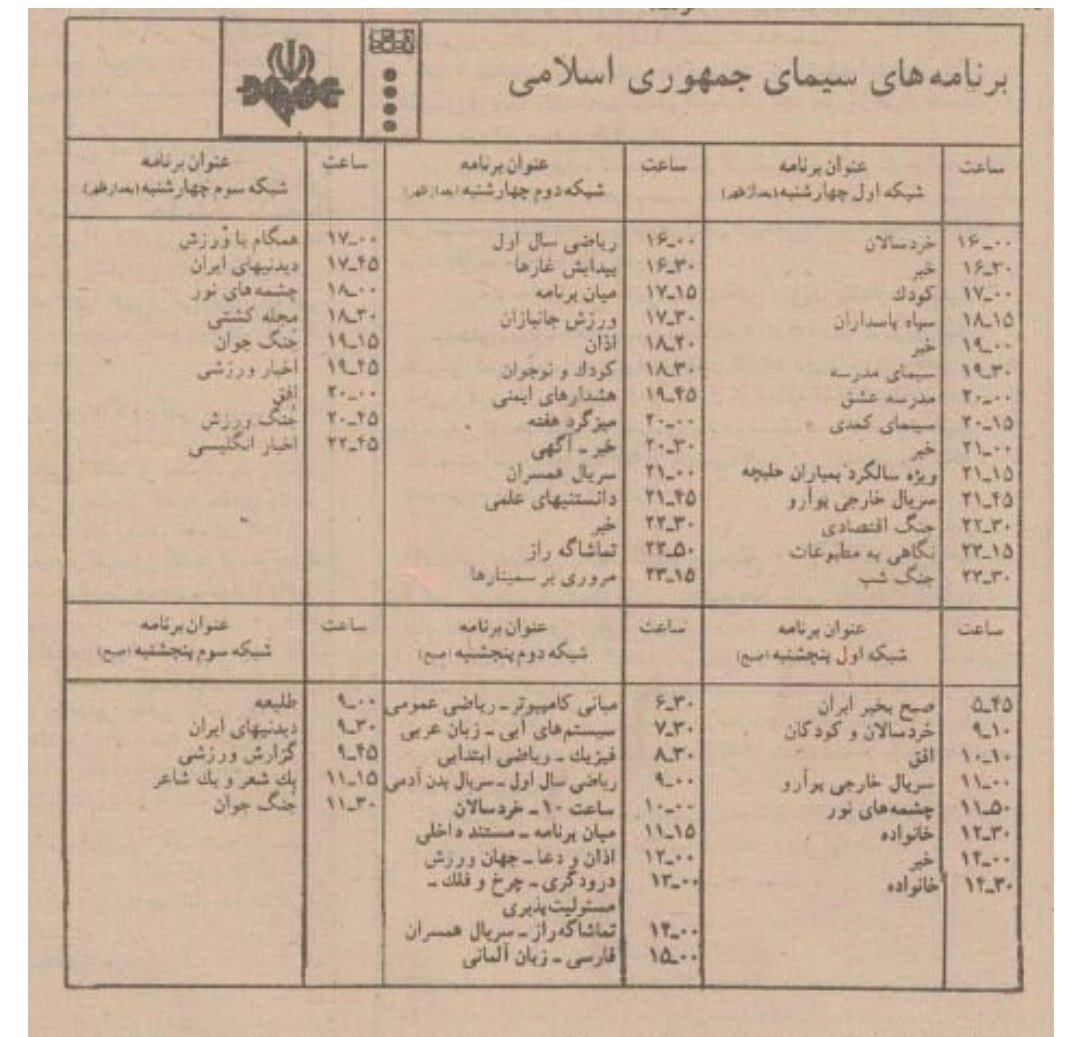 برنامه های سیمای جمهوری اسلامی
ساعت عنوان برنامه
شبکه اول چهارشنبه (بعدازظهر)
۱۶_۰۰ خردسالان
۱۶_۳۰ خبر
۱۷_۰۰ کودك
۱۸_۱۵ سپاه پاسداران
۱۹_۰۰ خبر
۱۹_۳۰ سیمای مدرسه
۲۰_۰۰ مدرسه عشق
۲۰_۱۵ سینمای کمدی
۲۱_۰۰ خبر
۲۱_۱۵ ویژه سالگرد بمباران حلبچه
۲۱_۴۵ سریال خارجی پوآرو
۲۲_۳۰ جنگ اقتصادی
۲۳_۱۵ نگاهی به مطبوعات
۲۳_۳۰ جنگ شب
ساعت عنوان برنامه
شبکه دوم چهارشنبه (بعدازظهر)
۱۶_۰۰ ریاضی سال اول
۱۶_۳۰ پیدایش غارها
۱۷_۱۵ میان برنامه
۱۷_۳۰ ورزش جانبازان
۱۸_۲۰ اذان
۱۸_۳۰ کودك و نوجوان
۱۹_۴۵ هشدارهای ایمنی
۲۰_۰۰ میزگرد هفته
۲۰_۳۰ خبر ـ آگهی
۲۱_۰۰ سریال همسران
۲۱_۴۵ دانستنیهای علمی
۲۲_۳۰ خبر
۲۲_۵۰ تماشاگه راز
۲۳_۱۵ مروری بر سمینارها
ساعت عنوان برنامه
شبکه سوم چهارشنبه (بعدازظهر)
۱۷_۰۰ همگام با ورزش
۱۷_۴۵ دیدنیهای ایران
۱۸_۰۰ چشمه های نور
۱۸_۳۰ مجله کشتی
۱۹_۱۵ جُنگ جوان
۱۹_۴۵ اخبار ورزشی
۲۰_۰۰ افق
۲۰_۴۵ جُنگ ورزش
۲۲_۴۵ اخبار انگلیسی
ساعت عنوان برنامه
شبکه اول پنجشنبه (صبح)
۵_۴۵ صبح بخیر ایران
۹_۱۰ خردسالان و کودکان
۱۰_۱۰ افق
۱۱_۰۰ سریال خارجی پوآرو
۱۱_۵۰ چشمه های نور
۱۲_۳۰ خانواده
۱۴_۰۰ خبر
۱۴_۳۰ خانواده
ساعت عنوان برنامه
شبکه دوم پنجشنبه (صبح)
۶_۳۰ مبانی کامپیوتر ـ ریاضی عمومی
۷_۳۰ سیستم های آبی ـ زبان عربی
۸_۳۰ فیزیك ـ ریاضی ابتدایی
۹_۰۰ ریاضی سال اول ـ سریال بدن آدمی
۱۰_۰۰ ساعت ۱۰ ـ خردسالان
۱۱_۱۵ میان برنامه ـ مستند داخلی
۱۲_۰۰ اذان و دعا ـ جهان ورزش
۱۳_۰۰ درودگری ـ چرخ و فلك ـ
مسئولیت پذیری
۱۴_۰۰ تماشاگه راز ـ سریال همسران
۱۵_۰۰ فارسی ـ زبان آلمانی
ساعت عنوان برنامه
شبکه سوم پنجشنبه (صبح)
۹_۰۰ طلیعه
۹_۳۰ دیدنیهای ایران
۹_۴۵ گزارش ورزشی
۱۱_۱۵ یك شعر و یك شاعر
۱۱_۳۰ جُنگ جوان